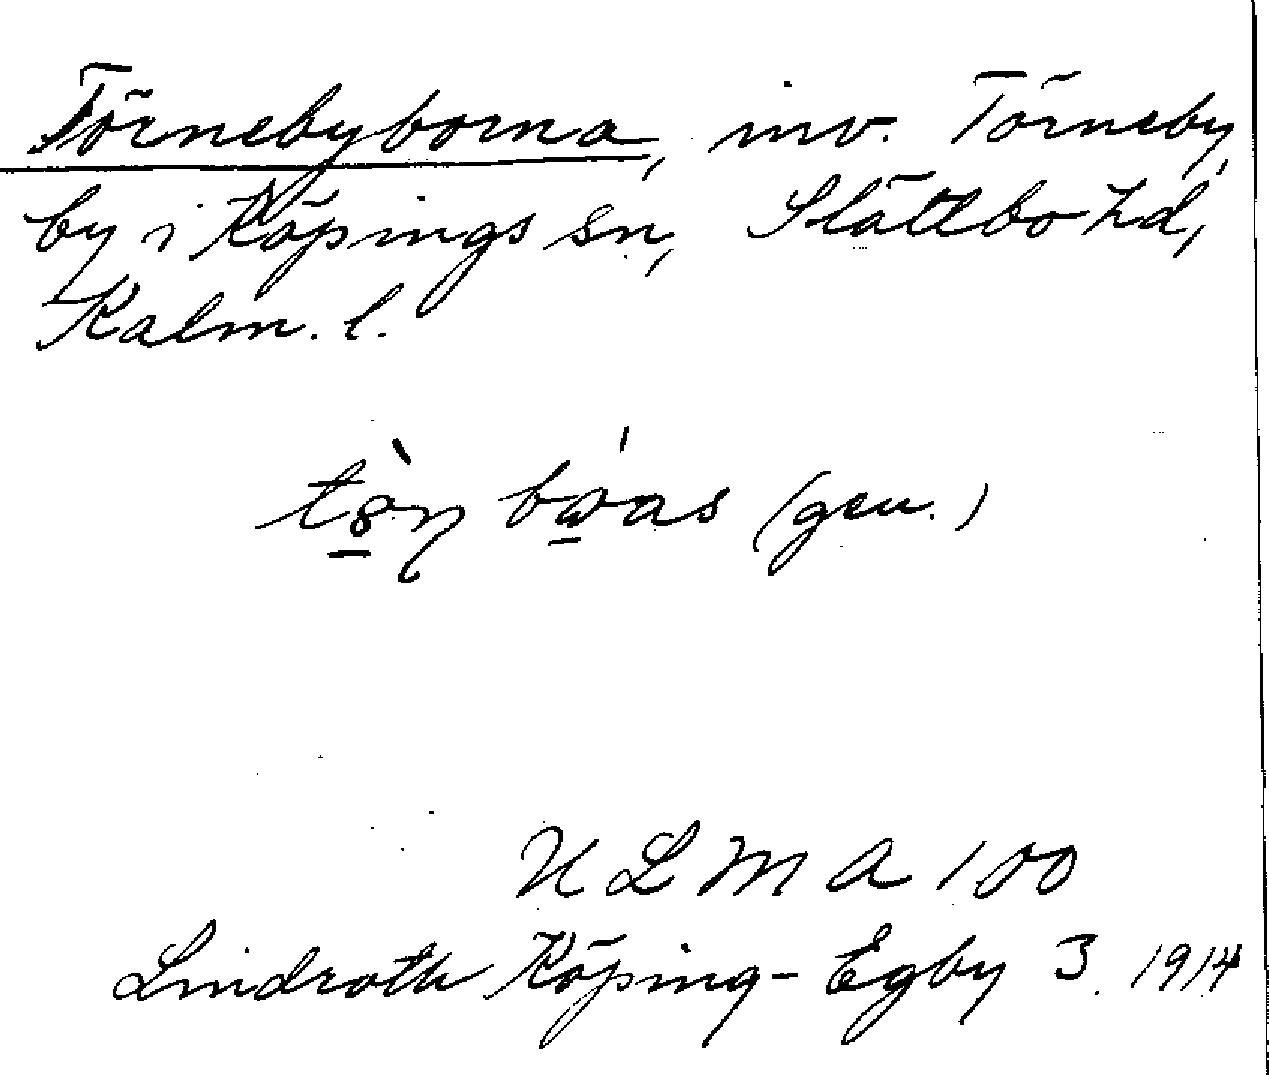 Törnebyborna, inv. Törneby,
by i Köpings sn, Slättbo hd,
Kalm. l.
(gen.)
ULMA 100
Lindroth Köping-Egby 3. 1914